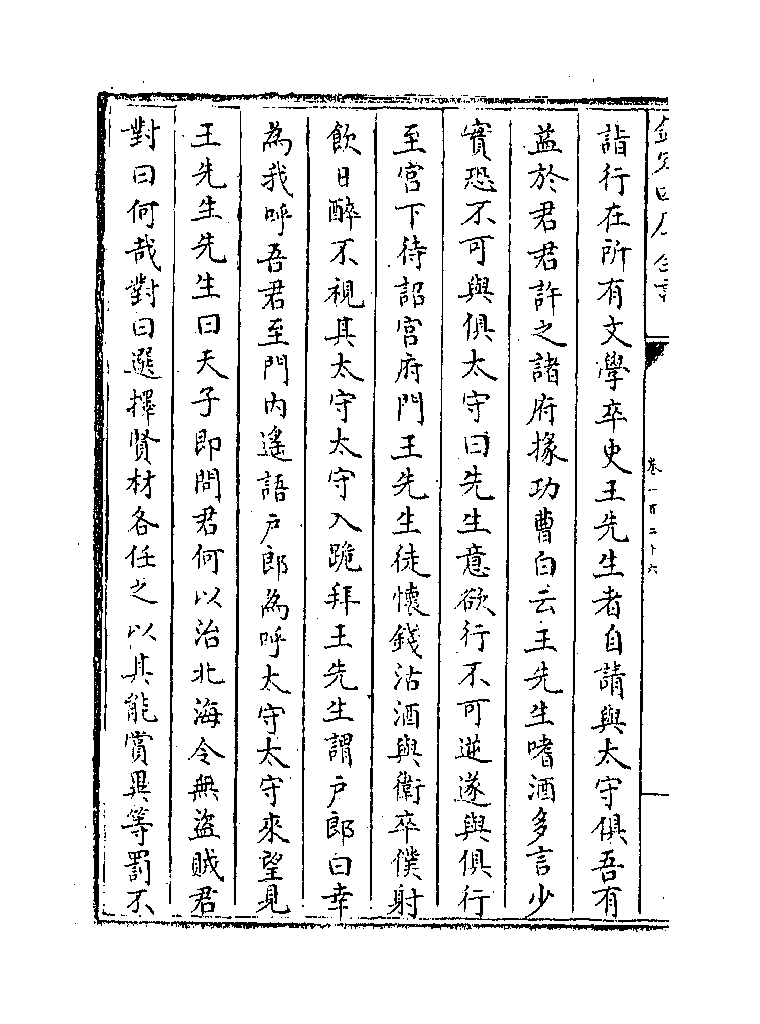 欽定四庫全書
卷一百二十六
詣行在所有文學卒史王先生者自請與太守俱吾有
益於君君許之諸府掾功曹白云王先生嗜酒多言少
實恐不可與俱太守曰先生意欲行不可逆遂與俱行
至宮下待詔宮府門王先生徒懷錢沽酒與衛卒僕射
飲日醉不視其太守太守入跪拜王先生謂户郎曰幸
為我呼吾君至門內遙語户郎為呼太守太守來望見
王先生先生曰天子即問君何以治北海令無盜賊君
對曰何哉對曰選擇賢材各任之以其能賞異等罰不